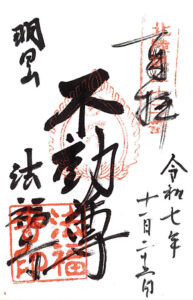 奉拝
令和七年
十一月二十六日
不動尊
明星山
法福寺
法福寺印